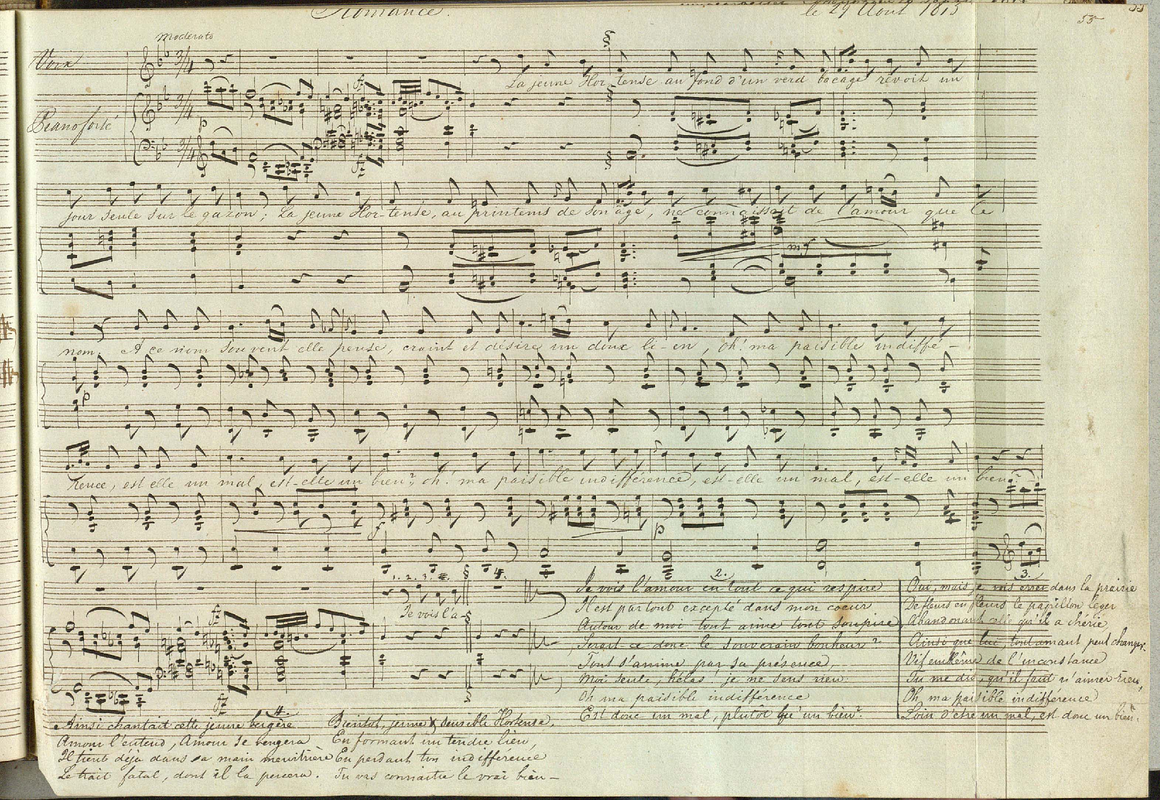 Romance.
le 29 Août 1813
55
moderato
Voix
La jeune Hor-tense au fond d'un verd bocage rêvoit un
Pianoforté
jour seule sur le gazon; La jeune Hor-tense, au printems de son age, ne connaissait de l'amour que le
nom, A ce nom souvent elle pense, craint et désire un doux li-en, oh! ma paisible indiffé-
rence, est elle un mal, est-elle un bien? oh! ma paisible indifférence, est-elle un mal, est-elle un bien.
1. 2. 3. 4.
Je vois l'a-
2.
Je vois l'amour en tout ce qui respire
Il est partout excepté dans mon coeur
Autour de moi tout aime tout soupire,
Serait ce donc le souverain bonheur?
Tout s'anime par sa présence,
Moi seule, hélas! je ne sens rien
Oh ma paisible indifférence
Est donc un mal, plutôt qu'un bien?
3.
Oui, mais je vois errer dans la prairie
De fleurs en fleurs le papillon léger
Abandonnant celle qu'il a chérie
Ainsi que lui, tout amant peut changer.
de l'inconstance
Tu me dis, qu'il faut n'aimer rien,
Oh ma paisible indifférence
Loin d'être un mal, est donc un bien.
4.
Ainsi chantait cette jeune bergère
Amour l'entend, Amour se vengera
Il tient déja dans sa main meurtrière
Le trait fatal, dont il la percera.
Bientot, jeune & sensible Hortense,
En formant un tendre lien,
En perdant ton indifférence
Tu vas connaitre le vrai bien—